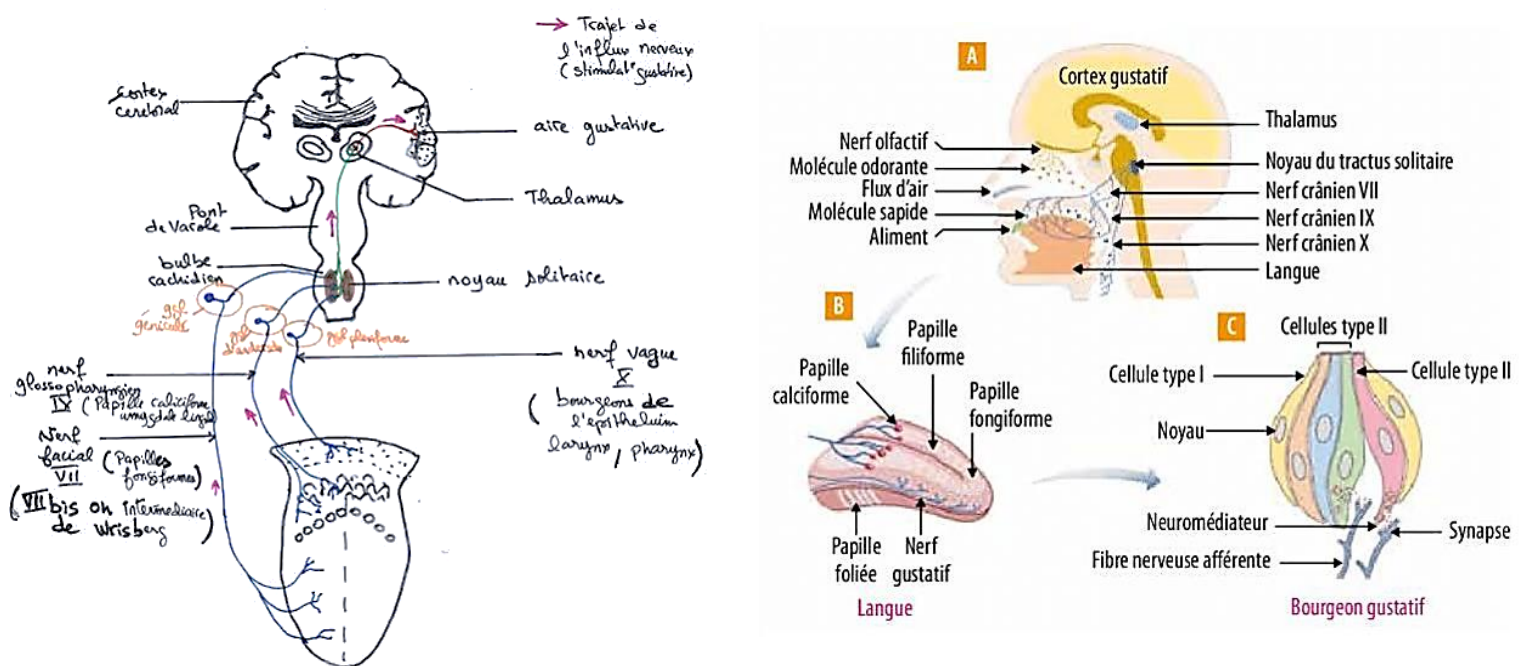 Trajet de
l'influx nerveux
(stimulat° gustative)
cortex
cerebral
aire gustative
Thalamus
Pont
de Varole
bulbe
rachidien
noyau solitaire
ggl
géniculé
ggl
ggl plexiforme
nerf
glossopharyngien
IX (Papille caliciforme
nerf vague
X
(bourgeons de
l'epitheluim
larynx, pharynx)
Nerf
facial
VII
(Papilles
fongiformes)
(VII bis ou intermediaire
de Wrisberg)
A
Cortex gustatif
Nerf olfactif
Molécule odorante
Flux d'air
Molécule sapide
Aliment
Thalamus
Noyau du tractus solitaire
Nerf crânien VII
Nerf crânien IX
Nerf crânien X
Langue
B
Papille
calciforme
Papille
filiforme
Papille
fongiforme
Papille
foliée
Nerf
gustatif
Langue
C
Cellules type II
Cellule type I
Cellule type II
Noyau
Neuromédiateur
Fibre nerveuse afférente
Synapse
Bourgeon gustatif